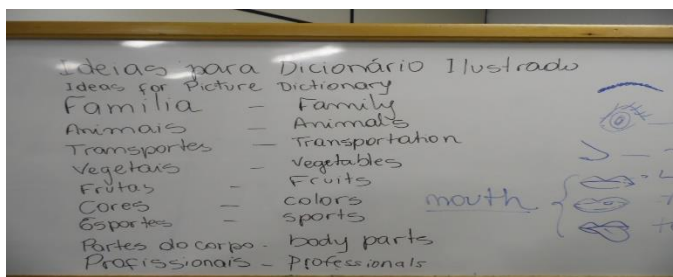 Ideias para Dicionário Ilustrado
Ideas for Picture Dictionary
Família – Family
Animais – Animals
Transportes – Transportation
Vegetais – Vegetables
Frutas – Fruits
Cores – colors
Esportes – sports
Partes do corpo - body parts
Profissionais - Professionals
mouth